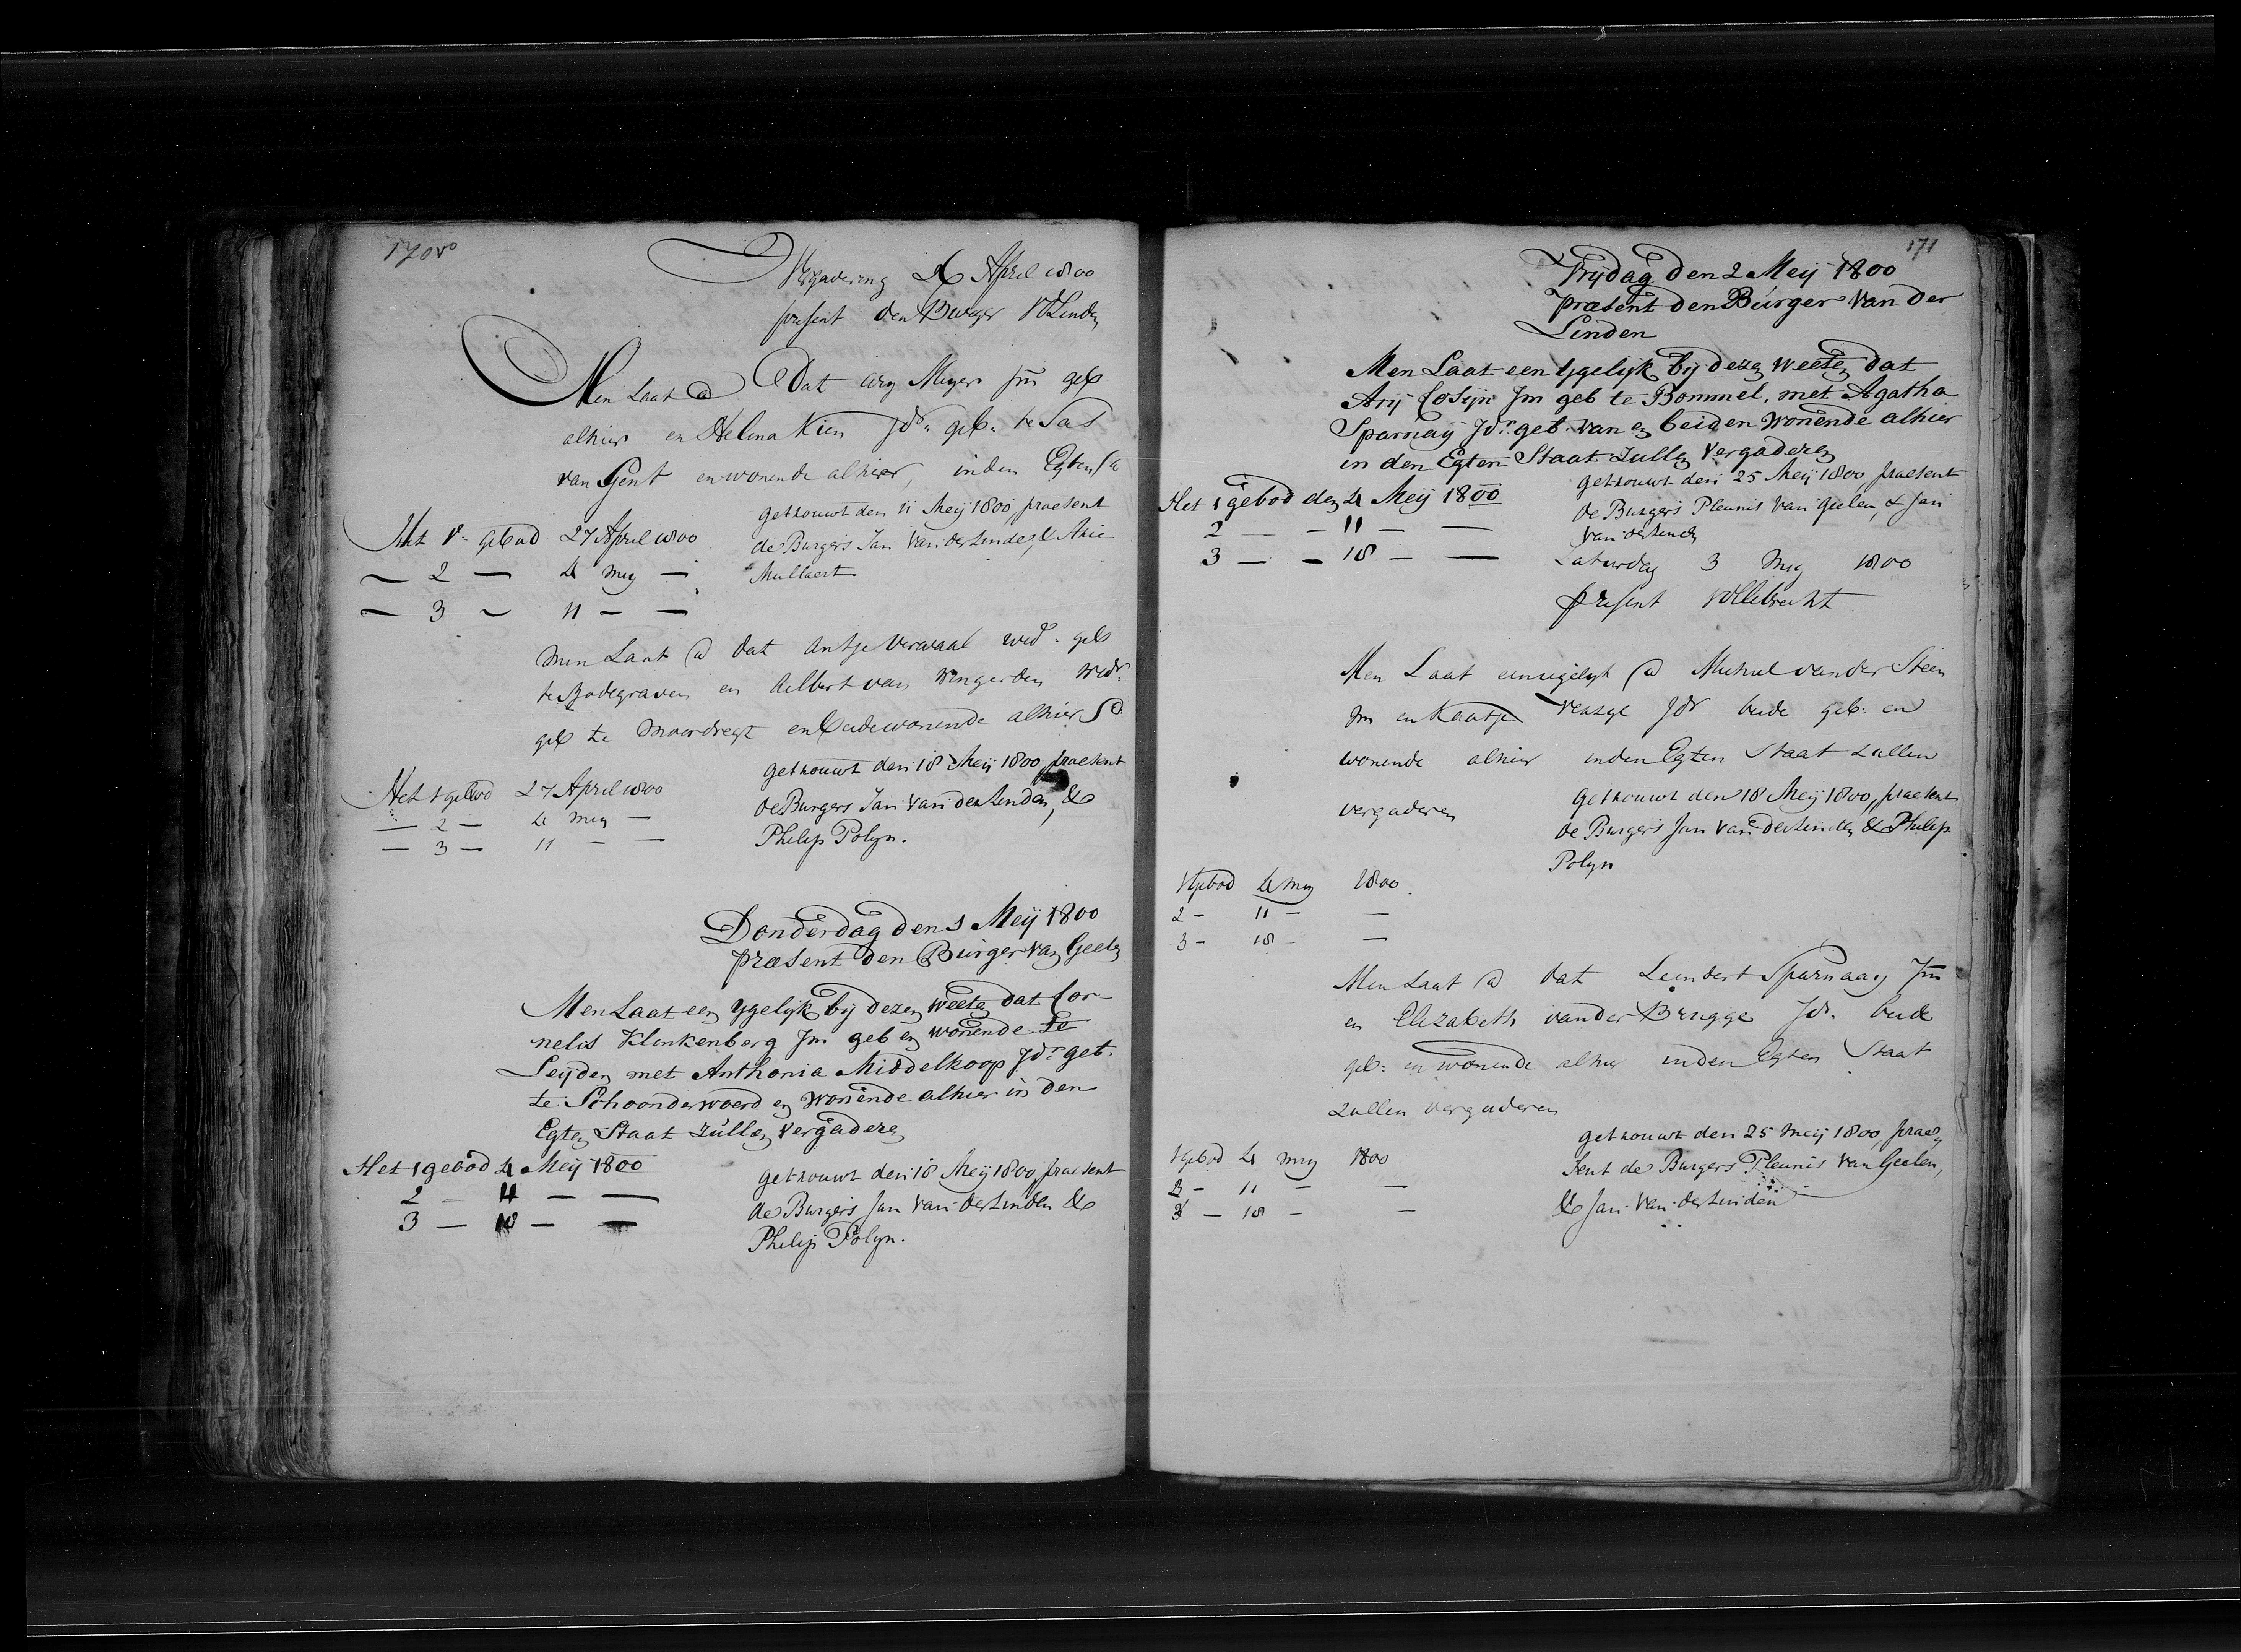 170vo
Vergadering 26 April 1800
present den Burger VdLinden
Men Laat @ Dat Ary Meyer Jm geb
alhier en Helena Kien Jdr. geb. te Sas
van Gent en wonende alhier, in den Egten @
Het 1e gebod 27 April 1800
— 2 — 4 mey —
— 3 — 11 — —
getrouwt den 11 Meij 1800, praesent
de Burgers Jan van der Linden, & Arie
Mullaert
Men Laat @ dat Antje Verwaal wed. geb
te Bodegraven en Aelbert van Wingerden Wedr.
geb te Moordregt en beide wonende alhier @
Het 1 gebod 27 April 1800
— 2 — 4 mey —
— 3 — 11 — —
getrouwt den 18 Meij 1800 praesent
de Burgers Jan van der Linden, &
Philip Polyn.
Donderdag den 1 Meij 1800
præsent den Burger van Geelen
Men Laat een ygelijk bij dezen weeten dat Cor-
nelis Klinkenberg Jm geb en wonende te
Leijden met Anthonia Middelkoop Jdr. geb.
te Schoonderwoerd en wonende alhier in den
Egten Staat zullen vergaderen
Het 1 gebod 4 Meij 1800
2 — 11 — —
3 — 18 — —
getrouwt den 18 Meij 1800, praesent
de Burgers Jan van der Linden &
Philip Polyn.
171
Vrijdag den 2 Meij 1800
præsent den Burger van der
Linden
Men Laat een ygelijk bij dezen weeten dat
Arij Cosijn Jm geb te Bommel, met Agatha
Sparnaij Jdr. geb. van en beiden wonende alhier
in den Egten Staat zullen vergaderen
Het 1 gebod den 4 Meij 1800
2 — — 11 — —
3 — — 18 — —
getrouwt den 25 Meij 1800, praesent
de Burgers Pleunis van Geelen, & Jan
van der Linden
Saturdag 3 Mey 1800
present Vollebrecht
Men Laat eenigelyk @ Michiel van der Steen
Jm en Kaatje Jdr beide geb: en
wonende alhier inden Egten Staat zullen
vergaderen
getrouwt den 18 Meij 1800, praesent
de Burgers Jan van der Linden & Philip
Polyn
1 gebod 4 mey 1800.
2 — 11 — —
3 — 18 — —
Men Laat @ dat Leendert Sparnaay Jm
en Elizabeth van der Brugge Jdr. beide
geb: en wonende alhier inden Egten Staat
zullen vergaderen
1 gebod 4 mey 1800
2 — 11 — —
3 — 18 — —
getrouwt den 25 meij 1800, prae-
sent de Burgers Pleunis van Geelen,
& Jan van der Linden